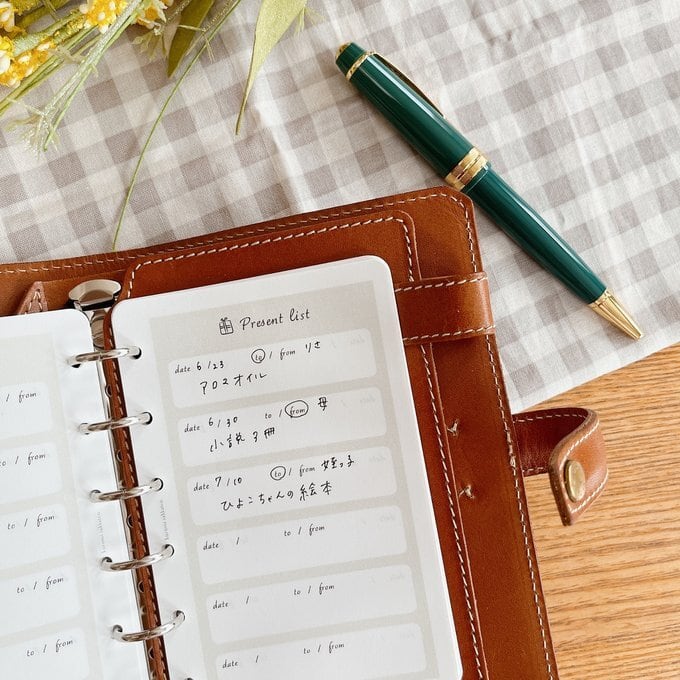 / from
/ from
to / from
to / from
to / from
to / from
Present list
date 6/23 to / from りさ
アロマオイル
date 6/30 to / from 母
小説 3冊
date 7/10 to / from 姪っ子
ひよこちゃんの絵本
date / to / from
date / to / from
date / to / from